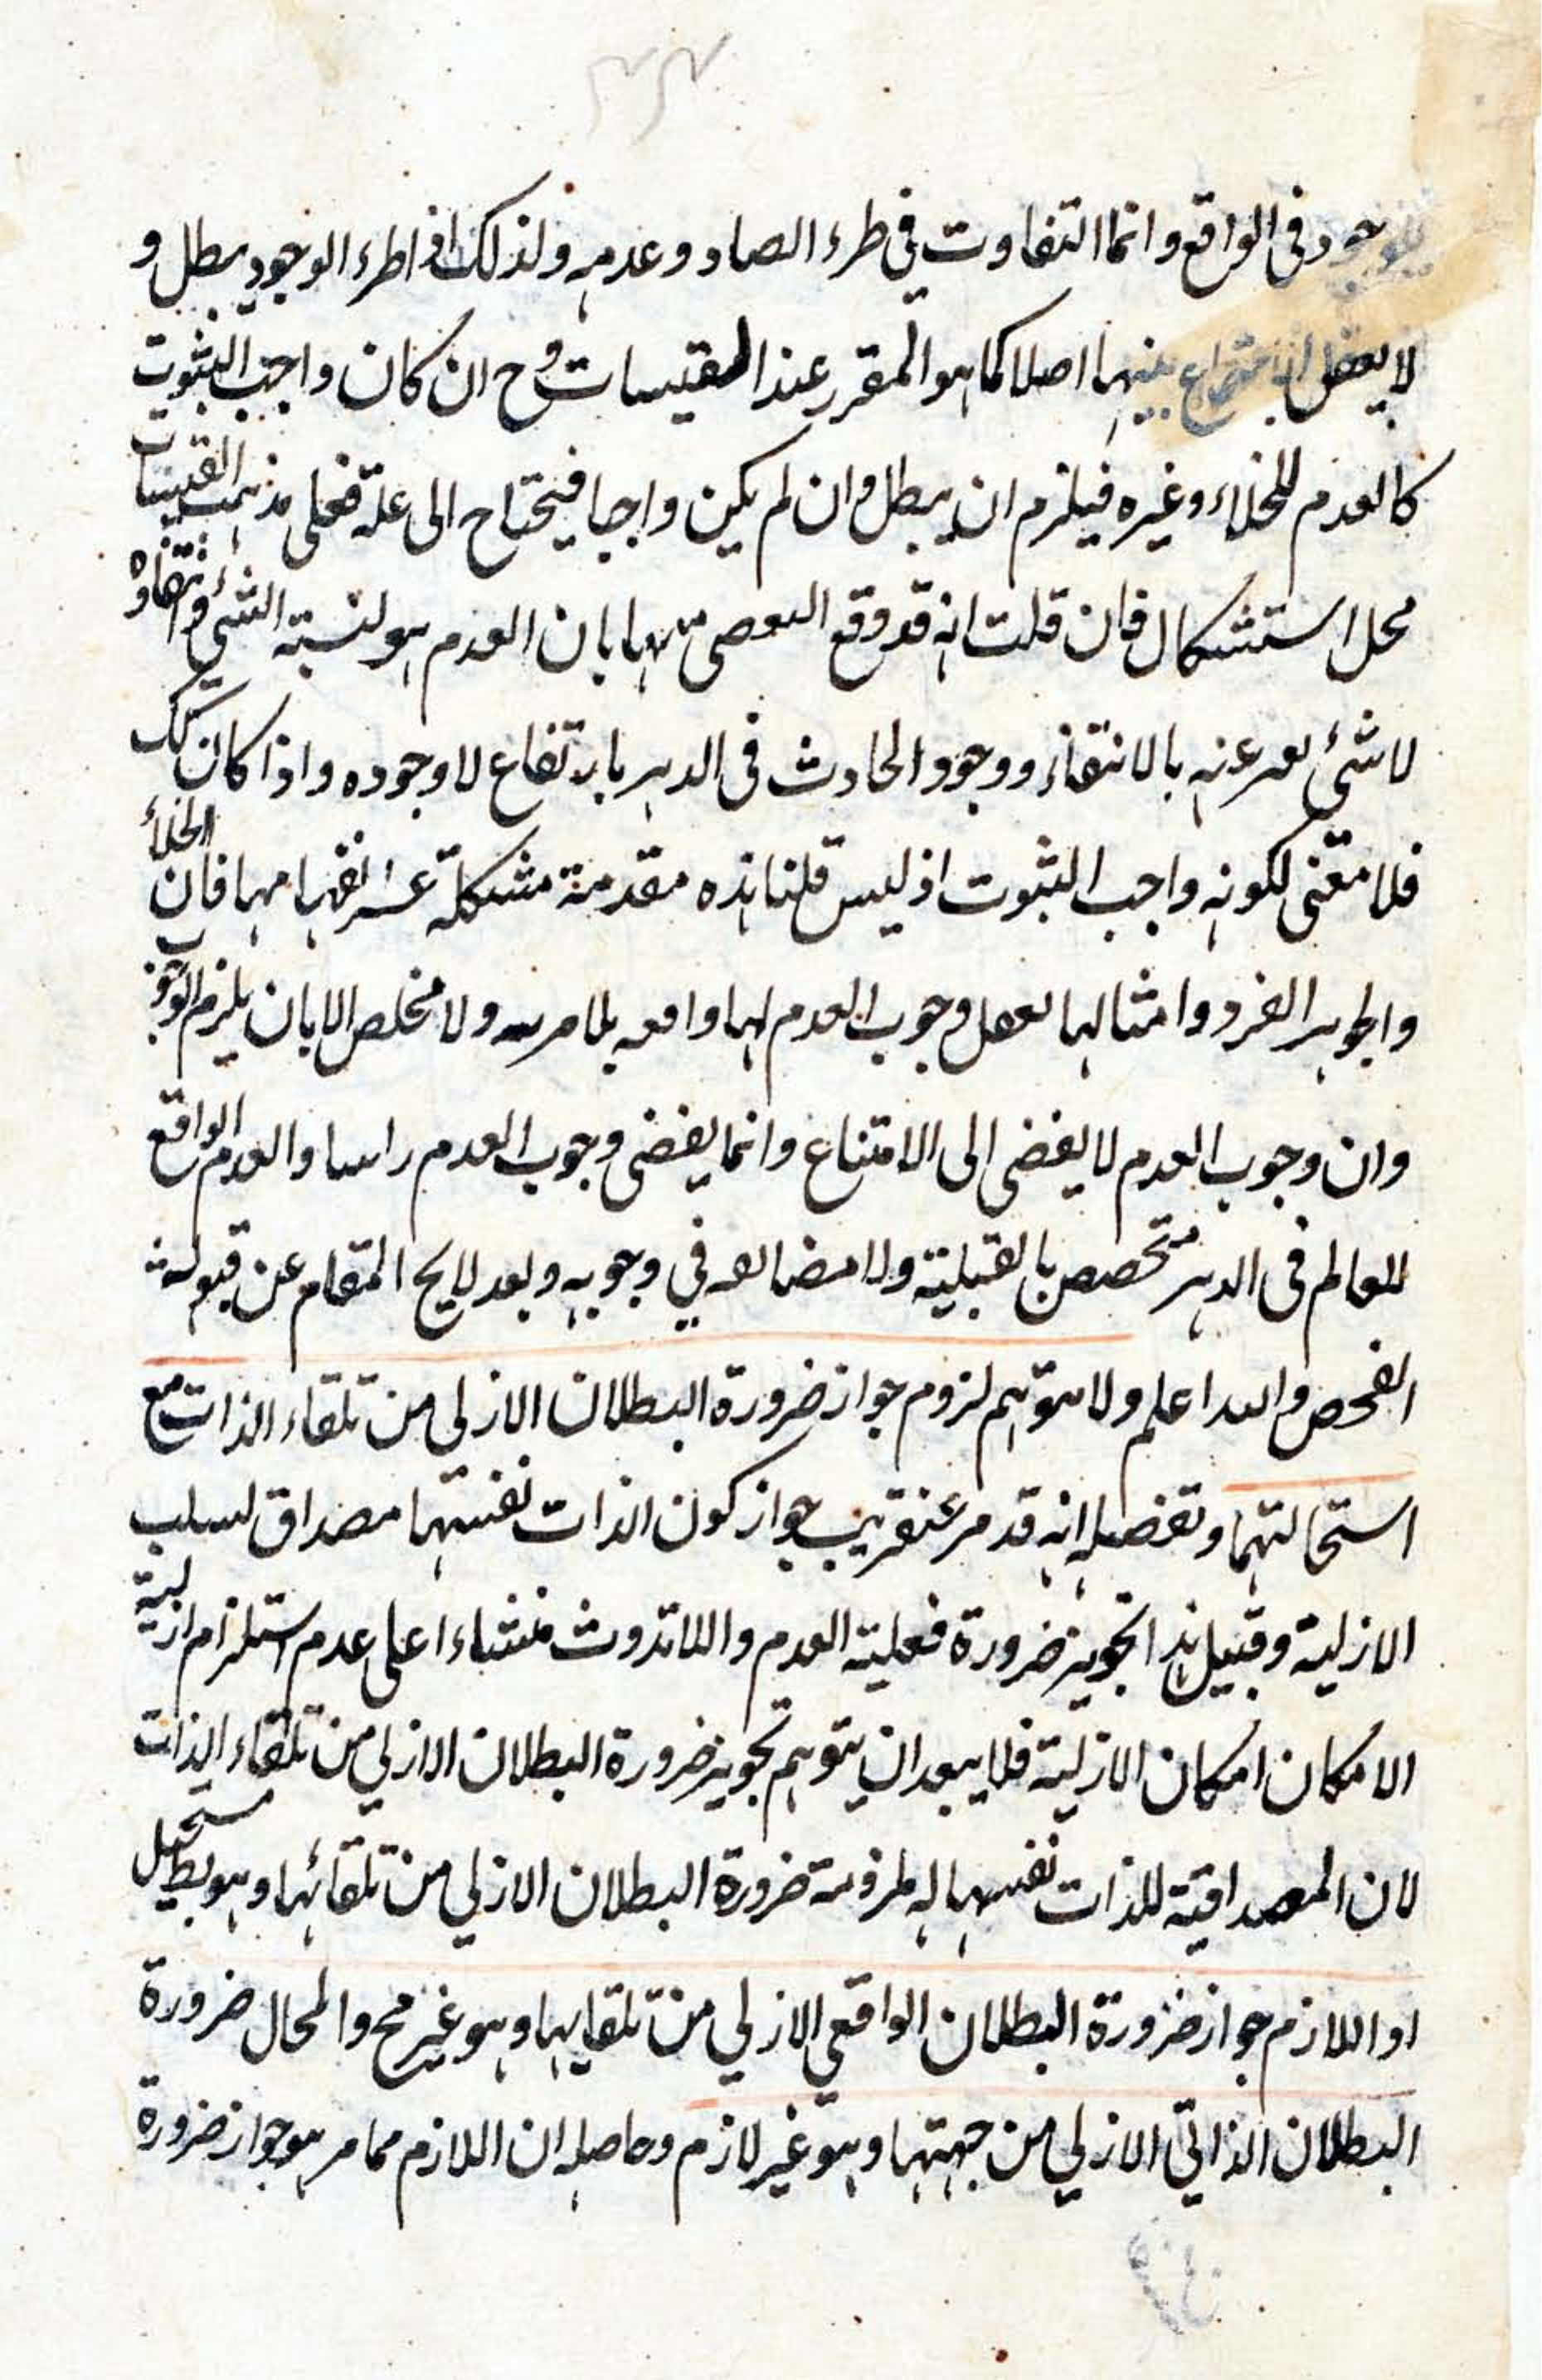 للوجود فى الواقع وانما التفاوت في طرء الصاد وعدمه ولذلك اذا طرء الوجود يبطل و
لا يعقل اجتماع بينهما اصلا كما هو المقرر عند القبسات وح ان كان واجب الثبوت
كالعدم للخلاء وغيره فيلزم ان يبطل وان لم يكن واجبا فيحتاج الى علة فعلى مذهب القبسات
محل استشكال فان قلت انه قد وقع بان العدم هو لنسبة الشئ وانتفاؤه
لا شئ يعبر عنه بالانتفاء ووجود الحادث فى الدهر بارتفاع لا وجوده واذا كان كك
فلا معنى لكونه واجب الثبوت اذ ليس قلنا هذه مقدمة مشكلة فان الخلاء
والجوهر الفرد وامثالها يعقل وجوب العدم لها بلا مرية ولا مخلص الا بان يلزم الوجوب
وان وجوب العدم لا يفضى الى الامتناع وانما يفضى وجوب العدم راسا والعدم الواقع
للعالم فى الدهر متخصص بالقبلية ولا مضايقه في وجوبه وبعد لايح المقام عن
الفحص والله اعلم ولا يتوهم لزوم جواز ضرورة البطلان الازلي من تلقاء الذات مع
استحالتها وتفصيله انه قد مر عنقريب جواز كون الذات نفسها مصداق لسلب
الازلية وقبيل هذا تجويز ضرورة فعلية العدم واللاتذوت منشاءا على عدم استلزام ازلية
الامكان امكان الازلية فلا يبعد ان يتوهم تجويز ضرورة البطلان الازلي من تلقاء الذات
لان المصداقية للذات نفسها له ضرورة البطلان الازلي من تلقائها وهو مستحيل
او اللازم جواز ضرورة البطلان الواقعي الازلي من تلقايها وهو غير مح والمحال ضرورة
البطلان الذاتي الازلي من جهتها وهو غير لازم وحاصله ان اللازم مما مر هو جواز ضرورة